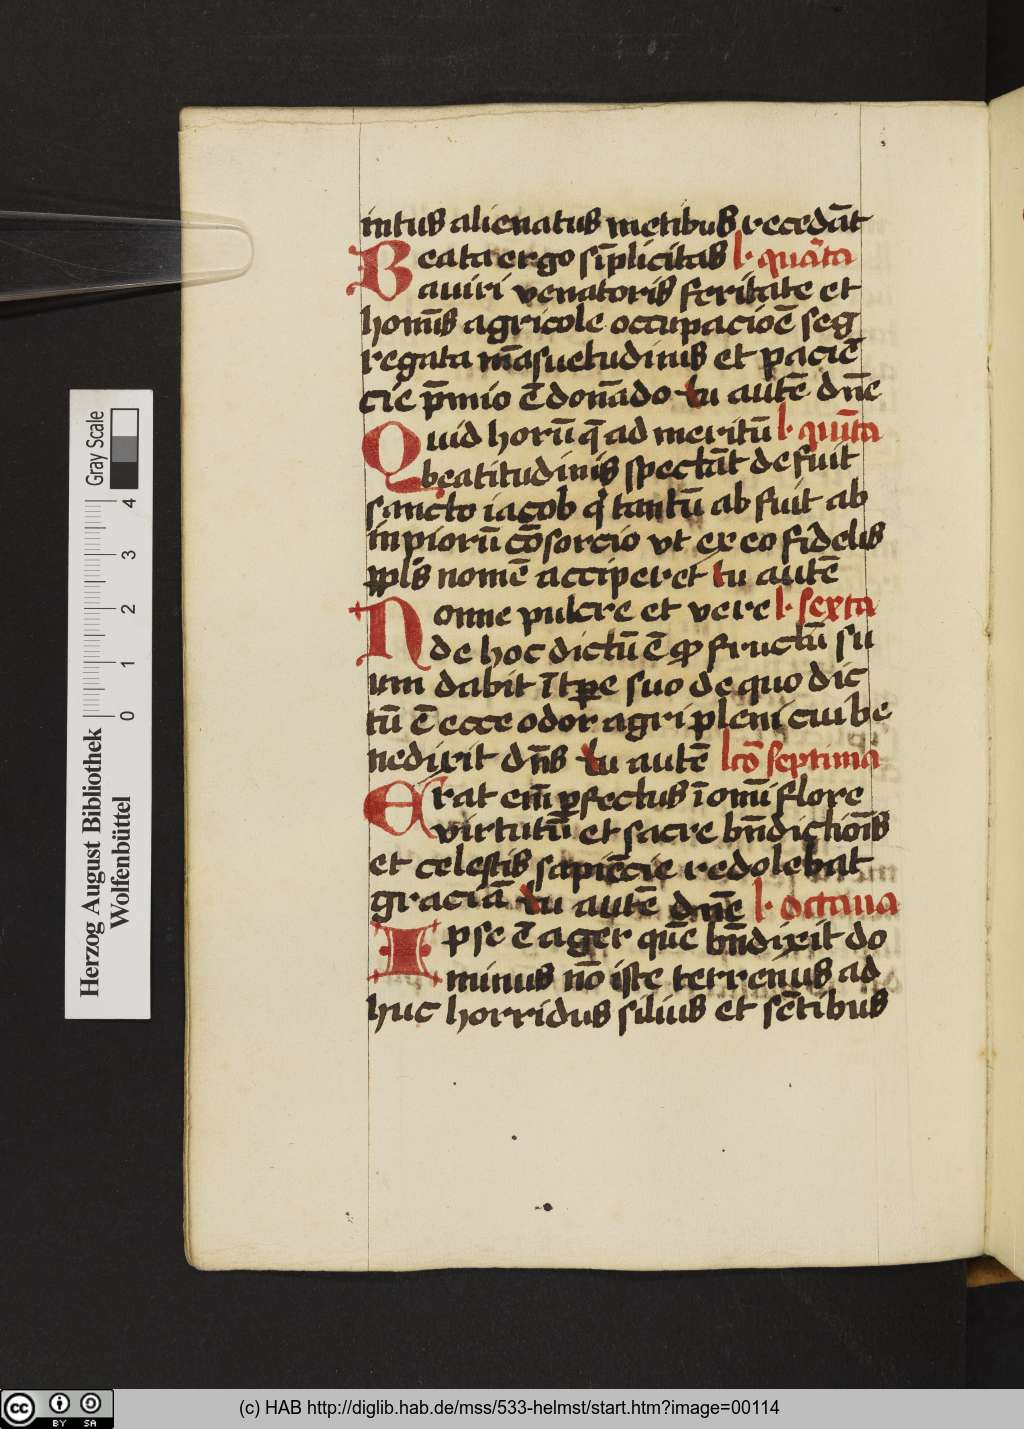 intus alienatus mētibus recedāt
Beata ergo sīplicitas l· quārta
a viri venatoris feritate et
homīs agricole occupacioē seg
regata māsuetudinis et paciē
cie p̄mio ē donādo tu autē dn̄e
Quid horū q̄ ad meritū l· quīta
beatitudinis spectāt defuit
sancto iacob q̇ tantū ab fuit ab
inpiorū cōsorcio vt ex eo fidelis
ppl's nomē acciperet tu autē
Nonne pulcre et vere l· sexta
de hoc dictū ē ꝙ fructū su
um dabit ī tꝑe suo de quo dic
tū ē ecce odor agri pleni cui be
nedixit dn̄s tu autē lcō septima
Erat em̄ ꝑfectus ī omī flore
virtutū et sacre bn̄dictiōis
et celestis sapiēcie redolebat
graciā tu autē dn̄e l· octaua
Ipse ē ager quē bn̄dixit do
minus nō iste terrenus ad
huc horridus siluis et sētibus
Herzog August Bibliothek
Wolfenbüttel
0 1 2 3 4
Gray Scale
cc BY SA
(c) HAB http://diglib.hab.de/mss/533-helmst/start.htm?image=00114